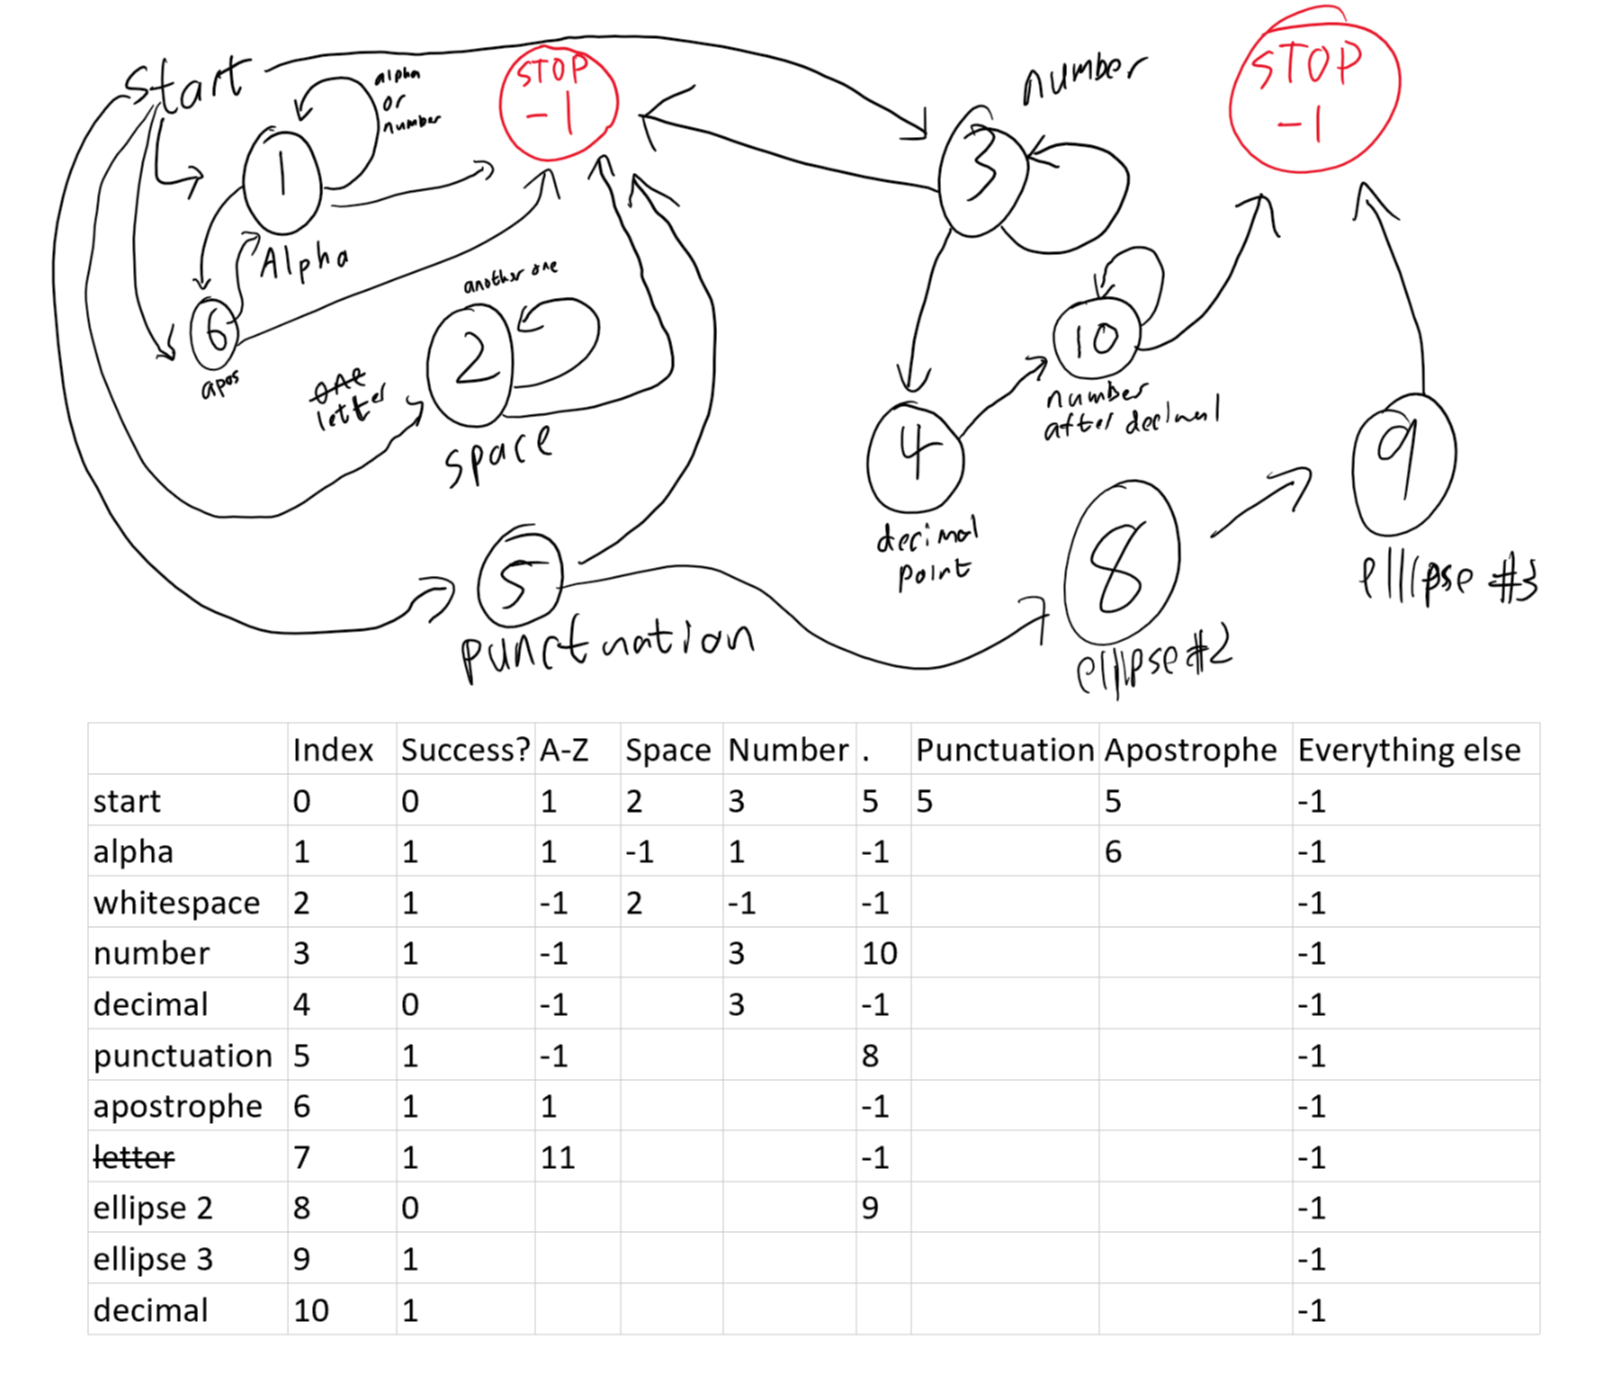 Start
alpha
or
number
STOP
-1
1
Alpha
6
apos
another one
2
one
letter
space
5
punctuation
number
3
STOP
-1
10
number
after decimal
4
decimal
point
8
ellipse #2
9
ellipse #3
Index Success? A-Z Space Number . Punctuation Apostrophe Everything else
start 0 0 1 2 3 5 5 5 -1
alpha 1 1 1 -1 1 -1 6 -1
whitespace 2 1 -1 2 -1 -1 -1
number 3 1 -1 3 10 -1
decimal 4 0 -1 3 -1 -1
punctuation 5 1 -1 8 -1
apostrophe 6 1 1 -1 -1
letter 7 1 11 -1 -1
ellipse 2 8 0 9 -1
ellipse 3 9 1 -1
decimal 10 1 -1